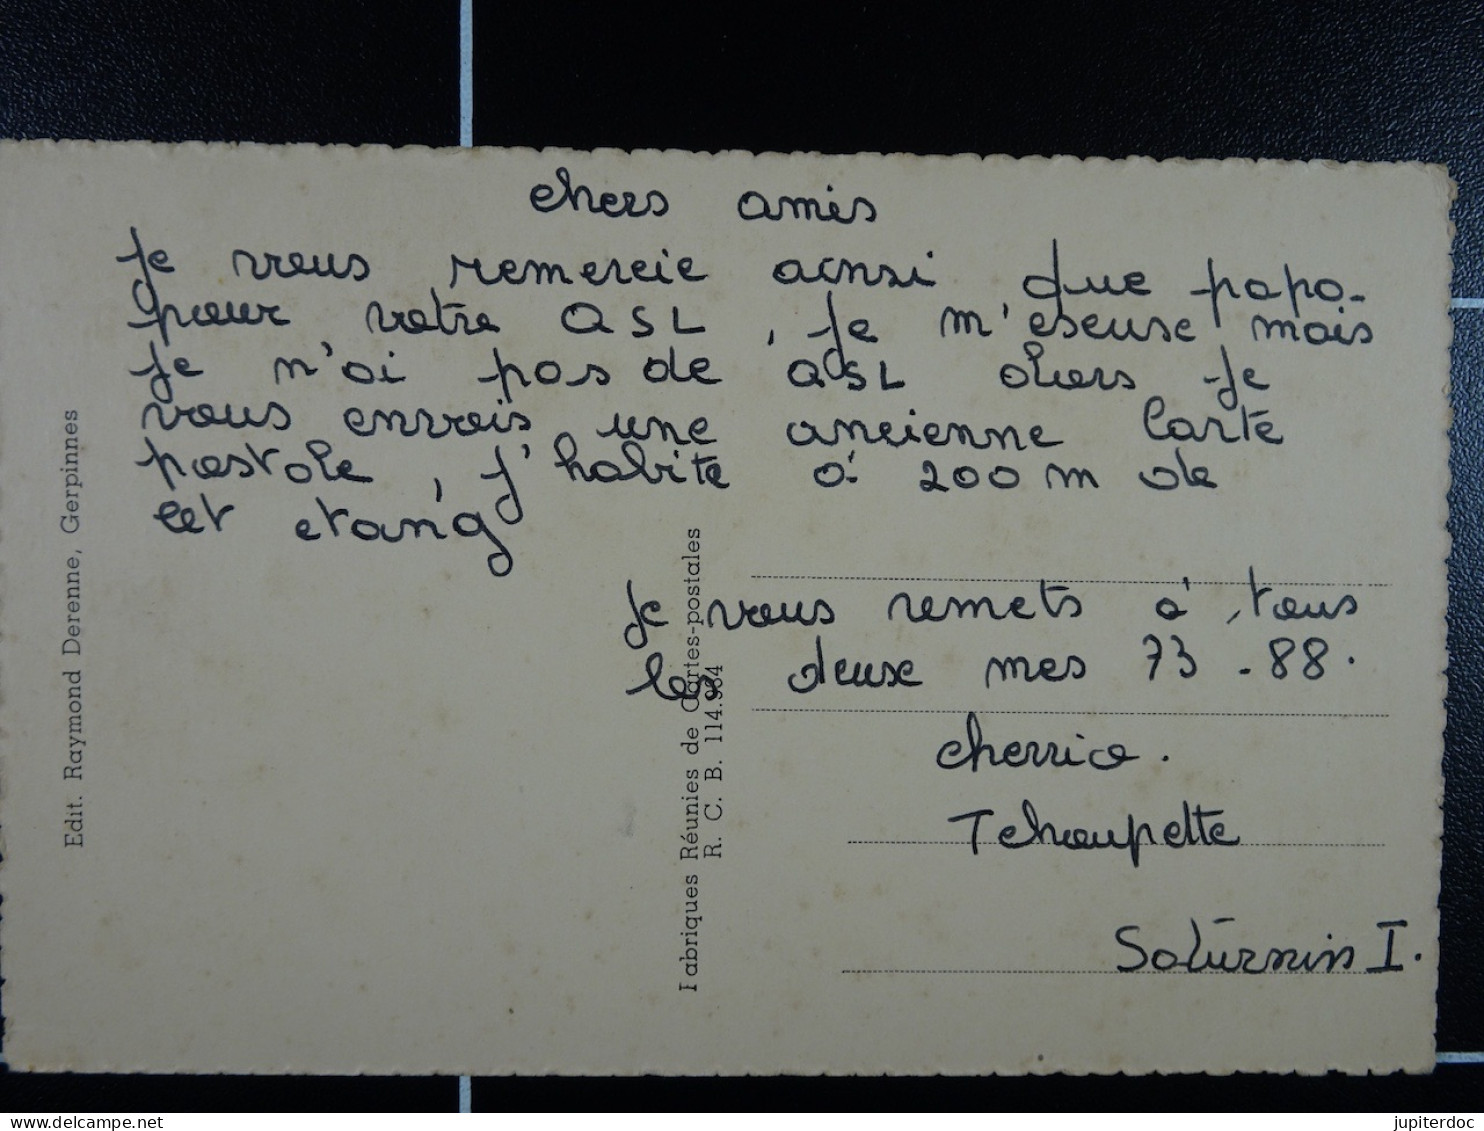 chers amis
Je vous remercie ainsi que papa.
pour votre QSL, Je m'escuse mais
Je n'ai pas de QSL alors Je
vous envois une ancienne Carte
postale, j'habite à 200 m de
cet etang
Je vous remets à tous
les deuse mes 73 - 88.
cherrio.
Tchoupette
Saturnin I.
Edit. Raymond Derenne, Gerpinnes
Fabriques Réunies de Cartes-postales
R. C. B. 114.984
delcampe.net
jupiterdoc